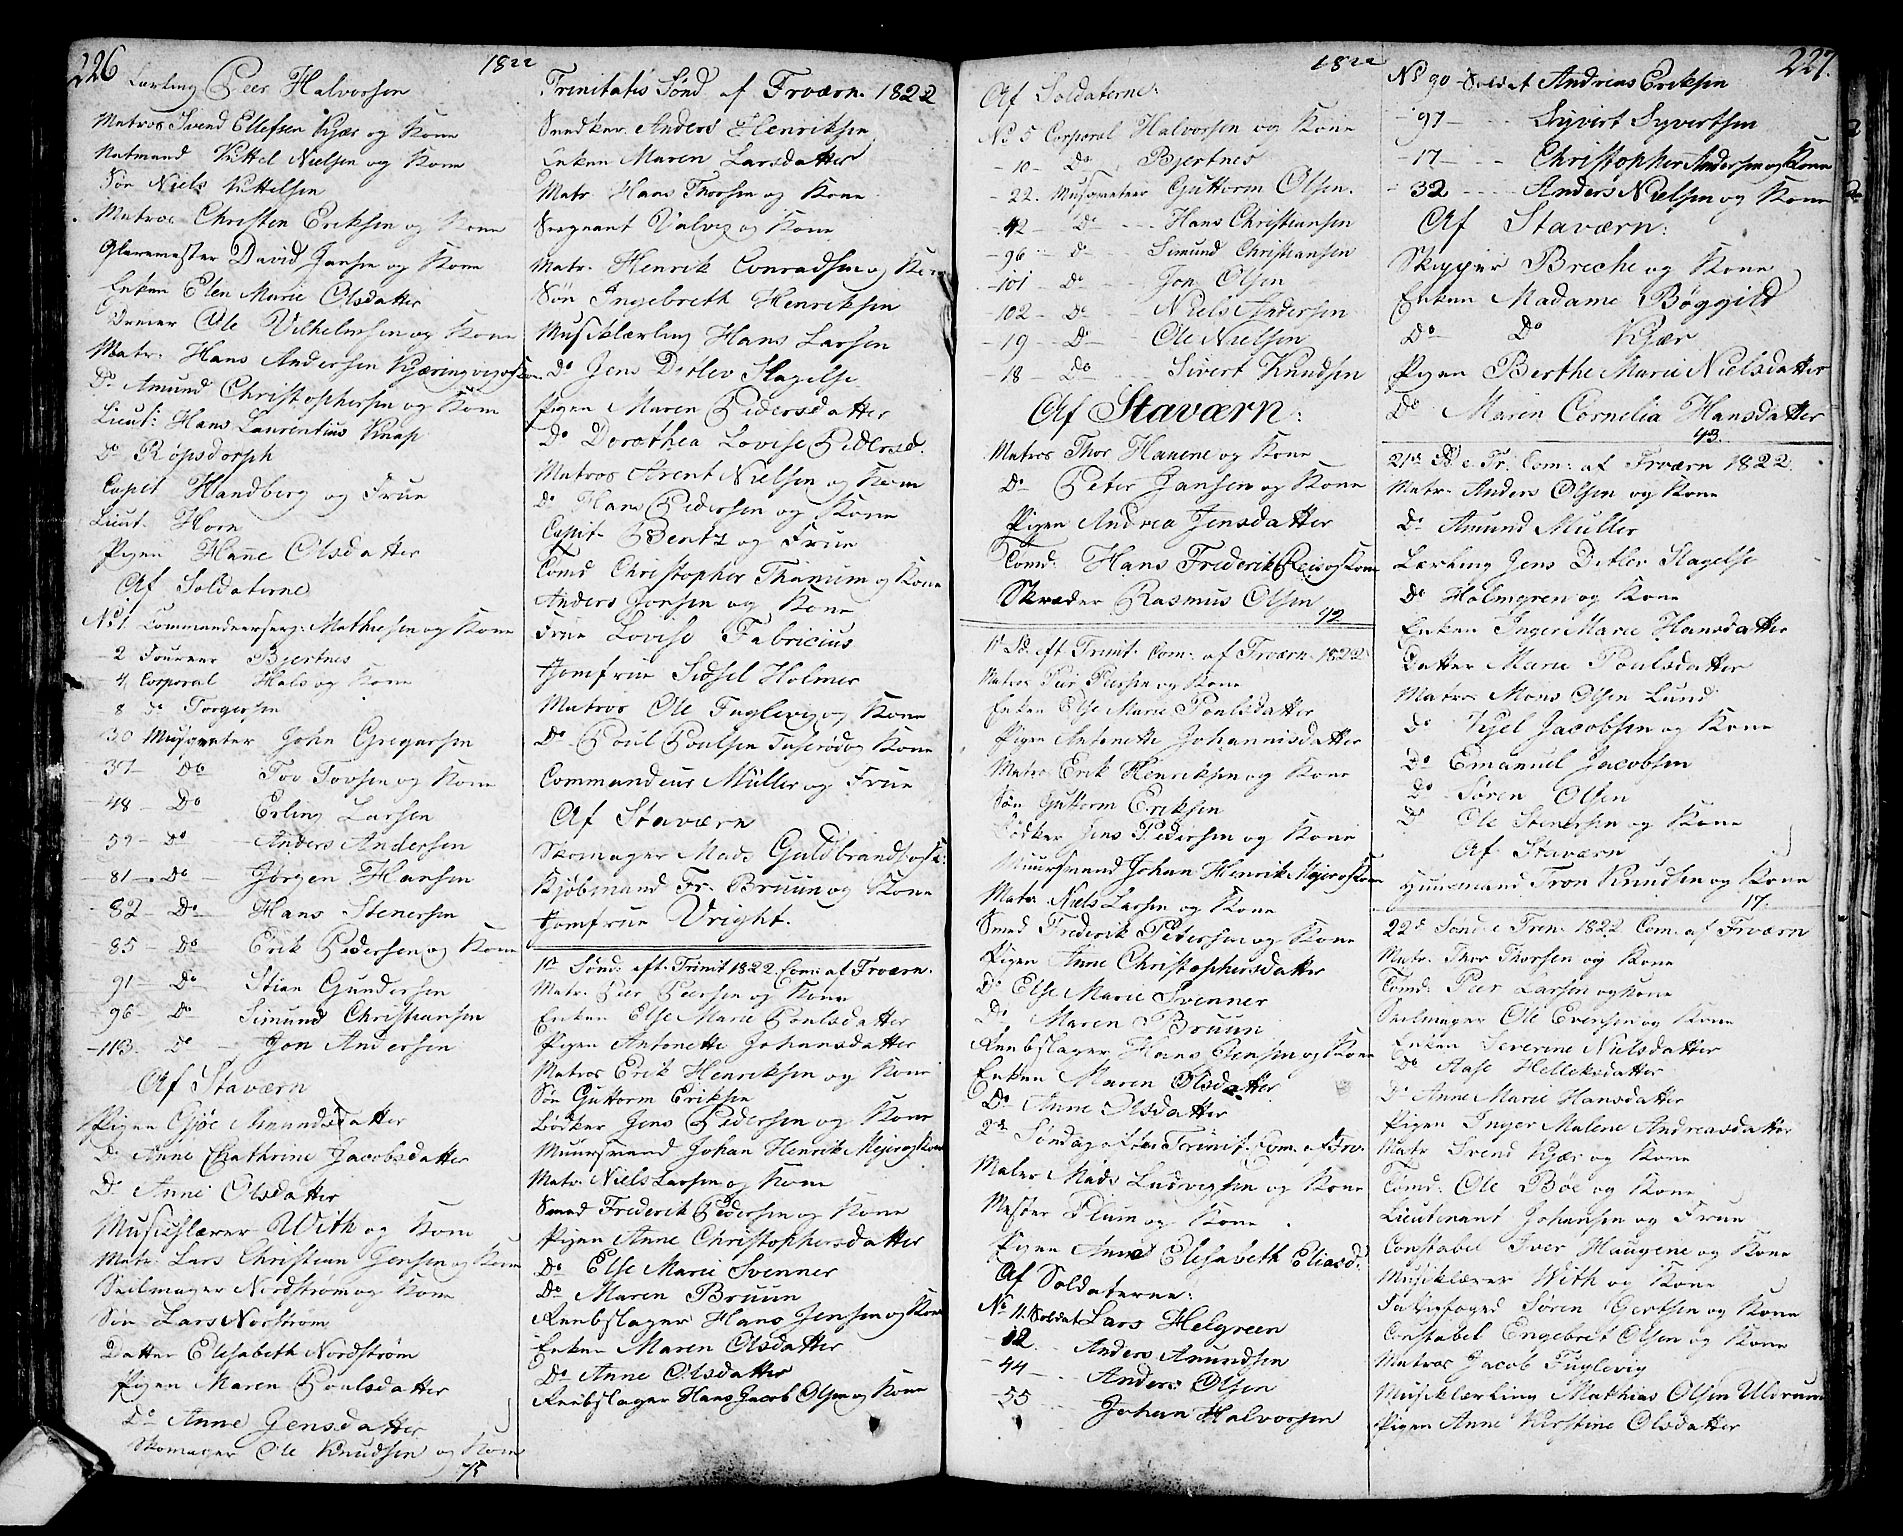 226
1822
Lærling Peer Halvorsen
Matros Svend Ellefsen Kjær og Kone
Natmand Kittel Nielsen og Kone
Søn Niels Kittelsen
Matros Christen Eriksen og Kone
Glaremester David Jansen og Kone
Enken Elen Marie Olsdatter
Ole Vilhelmsen og Kone
Matr. Hans Andersen Kjæringvig og Kon
Do Amund Christophersen og Kone
Lieut: Hans Laurentius Knap
Do Røpsdorph
Capit Handberg og Frue
Lieut. Horn
Pigen Hanne Olsdatter
Af Soldaterne
No 1. Commandeerserg: Mathiesen og Kone
- 2 Foureer Bjertnes
4 Corporal Hals og Kone
8 Do Torgersen
30 Musqueter John Gregersen
37 - Do Tov Tovsen og Kone
- 48 - Do Erling Larsen
59 - Do - Anders Andersen
- 81 - Do - Jørgen Hansen
- 82 - Do - Hans Stenersen
- 85 - Do Erik Pedersen og Kone
91 - Do Stian Gundersen
- 96 - Do Simund Christiansen
- 113. Do - Jon Andersen
Af Staværn
Pigen Gjøe Amundsdatter
Do Anne Chathrine Jacobsdatter
Do Anne Olsdatter
Musicslærer With og Kone
Matr. Lars Christian Jensen og Kone
Seilmager Nordstrøm og Kone
Søn Lars Norstrøm
Datter Elisabeth Nordstrøm
Pigen Maren Poulsdatter
Do Anne Jensdatter
Skomager Ole Knudsen og Kone
75
Trinitatis Sønd. af Frværn. 1822
Snedker Anders Henriksen
Enken Maren Larsdatter
Matr. Hans Thorsen og Kone
Sergeant Valvig og Kone
Matr. Henrik Conradsen og Kone
Søn Ingebreth Henriksen
Musiklærling Hans Larsen
Do Jens Ditlev Slagelse
Pigen Maren Pedersdatter
Do Dorothea Lovise Pedersd.
Matros Arent Nielsen og Kone
Do Hans Pedersen og Kone
Capit. Bentz og Frue
Tømd Christopher Thanum og Kone
Anders Jonsen og Kone
Frue Lovise Fabricius
Jomfrue Sidsel Holmer
Matros Ole Fuglevig og Kone
Do Poul Poulsen Taserød og Kone
Commandeur Müller og Frue
Af Staværn
Skomager Mads Guldbrands: og K:
Kjøbmand Fr. Bruun og Kone
Jomfrue Vright.
1ste Sønd: eft. Trinit 1822. Com: af Frværn.
Matr. Peer Peersen og Kone
Enken Else Marie Poulsdatter
Pigen Antonette Johansdatter
Matros Erik Henriksen og Kone
Søn Guttorm Eriksen
Bødker Jens Pedersen og Kone
Muursvend Johan Henrik Mejer og Kone
Matr. Niels Larsen og Kone
Smed Frederik Pedersen og Kone
Pigen Anne Christophersdatter
Do Else Marie Svenner
Do Maren Bruun
Reebslager Hans Jensen og Kone
Enken Maren Olsdatter
Do Anne Olsdatter
Reebslager Hans Jacob Olsen og Kone
1822
227.
Af Soldaterne:
No 5 Corporal Halvorsen og Kone
- 10 - Do Bjertnes
- 22. Musqueter Guttorm Olsen.
- 42 - Do - Hans Christiansen
- 96 - Do - Simund Christiansen
- 101 Do Jon Olsen
- 102 - Do - Niels Andersen
- 19 - Do - Ole Nielsen
- 18 - Do - Sivert Knudsen
Af Staværn:
Matros Thor Hauene og Kone
Do Peter Jansen og Kone
Pigen Andrea Jensdatter
Tømd: Hans Frederik Reis og Kone
Skræder Rasmus Olsen
92
1ste Sd. eft Trinit. Com: af Frværn. 1822
Matros Peer Peersen og Kone
Enken Else Marie Poulsdatter
Pigen Antoneth Johannisdatter
Matros Erik Henriksen og Kone
Søn Guttorm Eriksen
Bødker Jens Pedersen og Kone
Muursvend Johan Henrik Mejer og Kone
Matr. Niels Larsen og Kone
Smed Frederik Petersen og Kone
Pigen Anne Christophersdatter
Do Else Marie Svenner
Do Maren Bruun
Reebslager Hans Jensen og Kone
Enken Maren Olsdatter
Do Anne Olsdatter
2den Søndag efter Trinit. Com. af Frv.
Maler Mads Ludvigsen og Kone
Mester Plum og Kone
Pigen Anne Elisabeth Eliasd.
Af Soldaterne:
No 11. Soldat Lars Helgreen
- 12. - Anders Amundsen
- 44 - Anders Olsen
- 55 Johan Halvorsen
No 90 Soldat Andreas Eriksen
- 97 - Syvert Syvertsen
- 17 - Christopher Andersen og Kone
- 32 - Anders Nielsen og Kone
Af Staværn:
Skipper Breche og Kone
Enken Madame Bøggild
Do Do Kjær
Pigen Berthe Marie Nielsdatter
Do Maren Cornelia Hansdatter
43.
21de Sd e. Tr: Com: af Frværn 1822.
Matr. Anders Olsen og Kone
Do Amund Müller
Lærling Jens Ditlev Slagelse
Do Holmgren og Kone
Enken Inger Marie Hansdatter
Datter Marie Poulsdatter
Matros Mons Olsen Lund
Do Kjel Jacobsen og Kone
Do Emanuel Jacobsen
Do Søren Olsen
Do Ole Stenersen og Kone
Af Staværn
Huusmand Tron Knudsen og Kone
17.
22de Sond e Tren. 1822 Com. af Frværn
Matr. Thor Thorsen og Kone
Tømd: Peer Larsen og Kone
Seilmager Ole Evensen og Kone
Enken Severine Nielsdatter
Do Aase Helleksdatter
Do Anne Marie Hansdatter
Pigen Inger Malene Andreasdatter
Matr Svend Kjær og Kone
Tømd: Ole Bøe og Kone
Lieutenant Johansen og Frue
Constabel Iver Haugene og Kone
Musiklærer With og Kone
Søren Gertsen og Kone
Constabel Engebret Olsen og Kone
Matros Jacob Fuglevig
Musiklærling Mathias Olsen Uldrum
Pigen Anne Kirstine Olsdatter